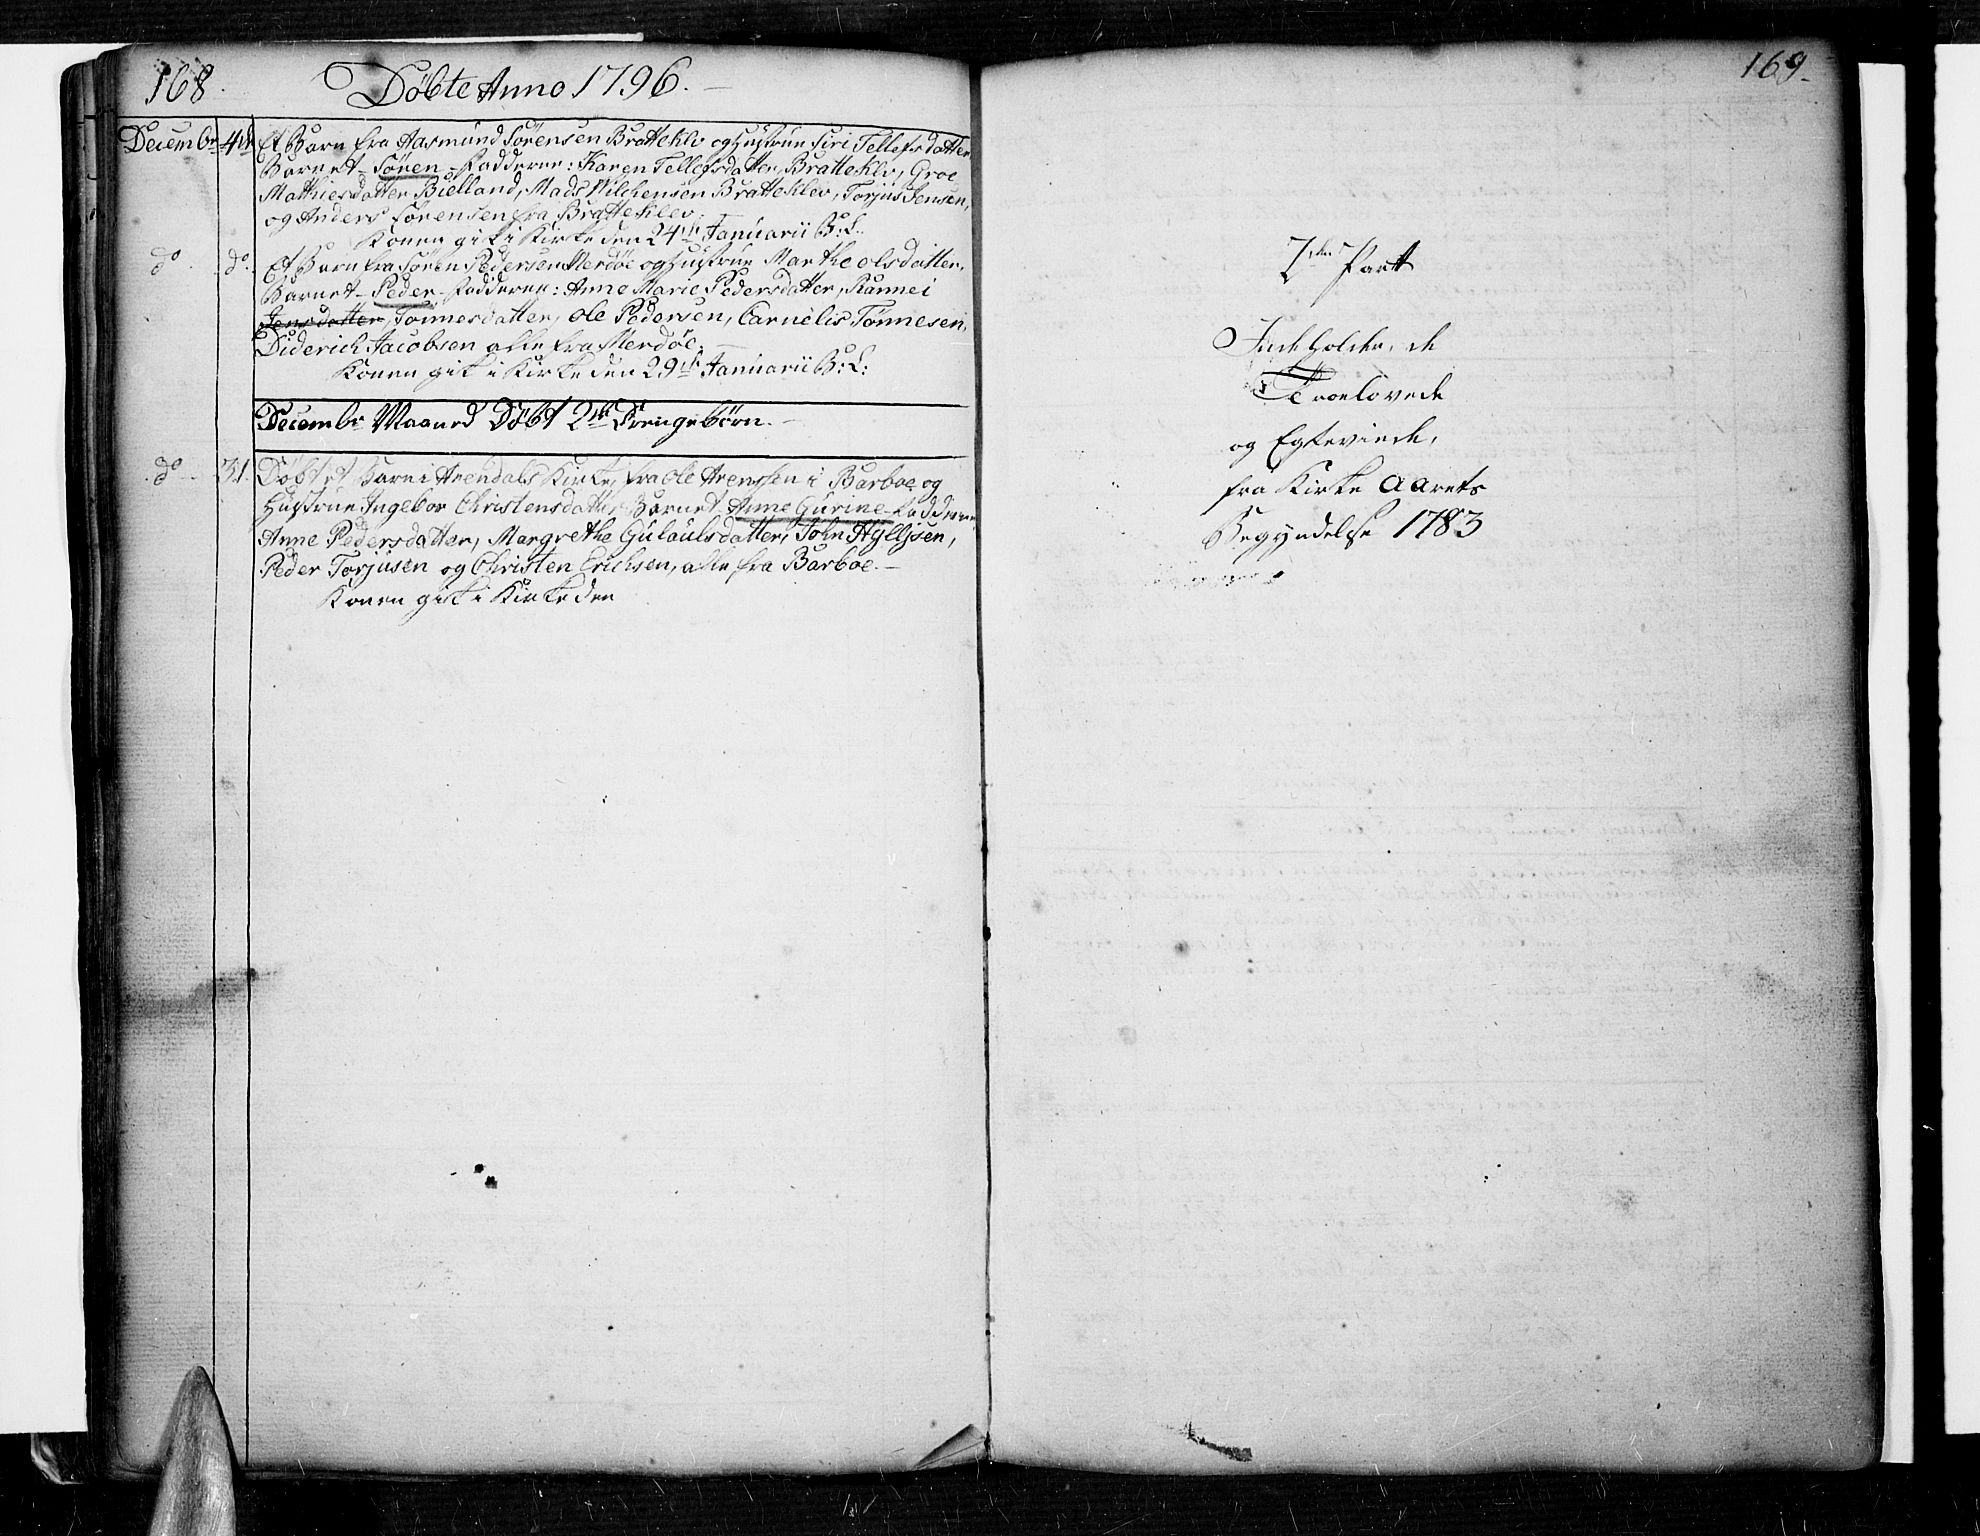 168.
Döbte Anno 1796.
Decembr 4de Et Barn fra Aasmund Sørensen Bratteklv og Hustrue Siri Tellefsdatter
Barnet Søren Fadderne: Karen Tellefsdatter Bratteklv, Groe
Mathiesdatter Bielland, Mads Wilchensen Bratteklev, Torjus Jensen,
og Anders Sørensen fra Bratteklev.
Konen gik i Kirke den 24de Januarii B: L.
do. do. Et Barn fra Søren Pedersen Merdöe og Hustrue Marthe Olsdatter.
Barnet Peder Fadderne: Anne Marie Pedersdatter, Rannei
Jensdatter, Tönnesdatter, Ole Pedersen, Carnelis Tönnesen,
Diderich Jacobsen alle fra Merdöe.
Konen gik i Kirke den 29de Januarii B: L:
Decembr Maaned Döbt 2de Drengebörn.
do 31. Döbt et Barn i Arendals Kirke, fra Ole Arenssen i Barboe og
Hustrue Ingebor Christensdatter Barnet Anne Gurine Fadderne
Anne Pedersdatter, Margrethe Gulaulsdatter, John Hylljsen,
Peder Torjusen og Christen Erichsen, alle fra Barboe.
Konen gik i Kirke den
169.
7de Part
Indeholder, de
Troelovede
og Egteviede,
fra Kirke Aarets
Begyndelse 1783